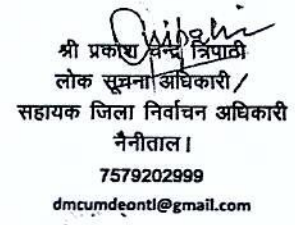 श्री प्रकाश चन्द्र त्रिपाठी
लोक सूचना अधिकारी /
सहायक जिला निर्वाचन अधिकारी
नैनीताल।
7579202999
dmcumdeontl@gmail.com